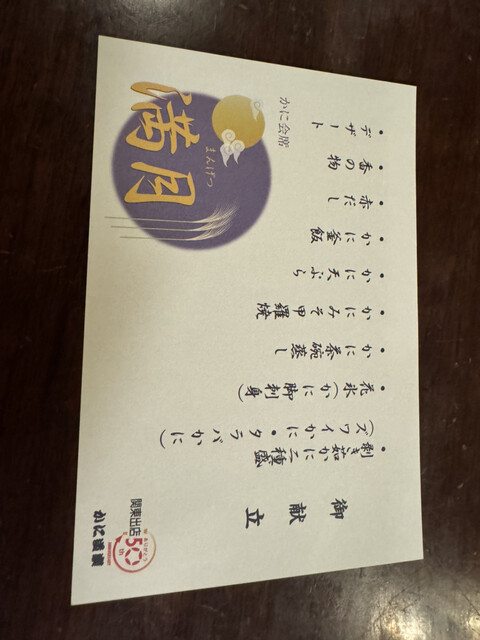 御献立
・剥き茹かに二種盛
(ズワイかに・タラバかに)
・花氷(かに脚刺身)
・かに茶碗蒸し
・かにみそ甲羅焼
・かに天ぷら
・かに釜飯
・赤だし
・香の物
・デザート
かに会席
まんげつ
満月
関東出店
50th
かに道楽